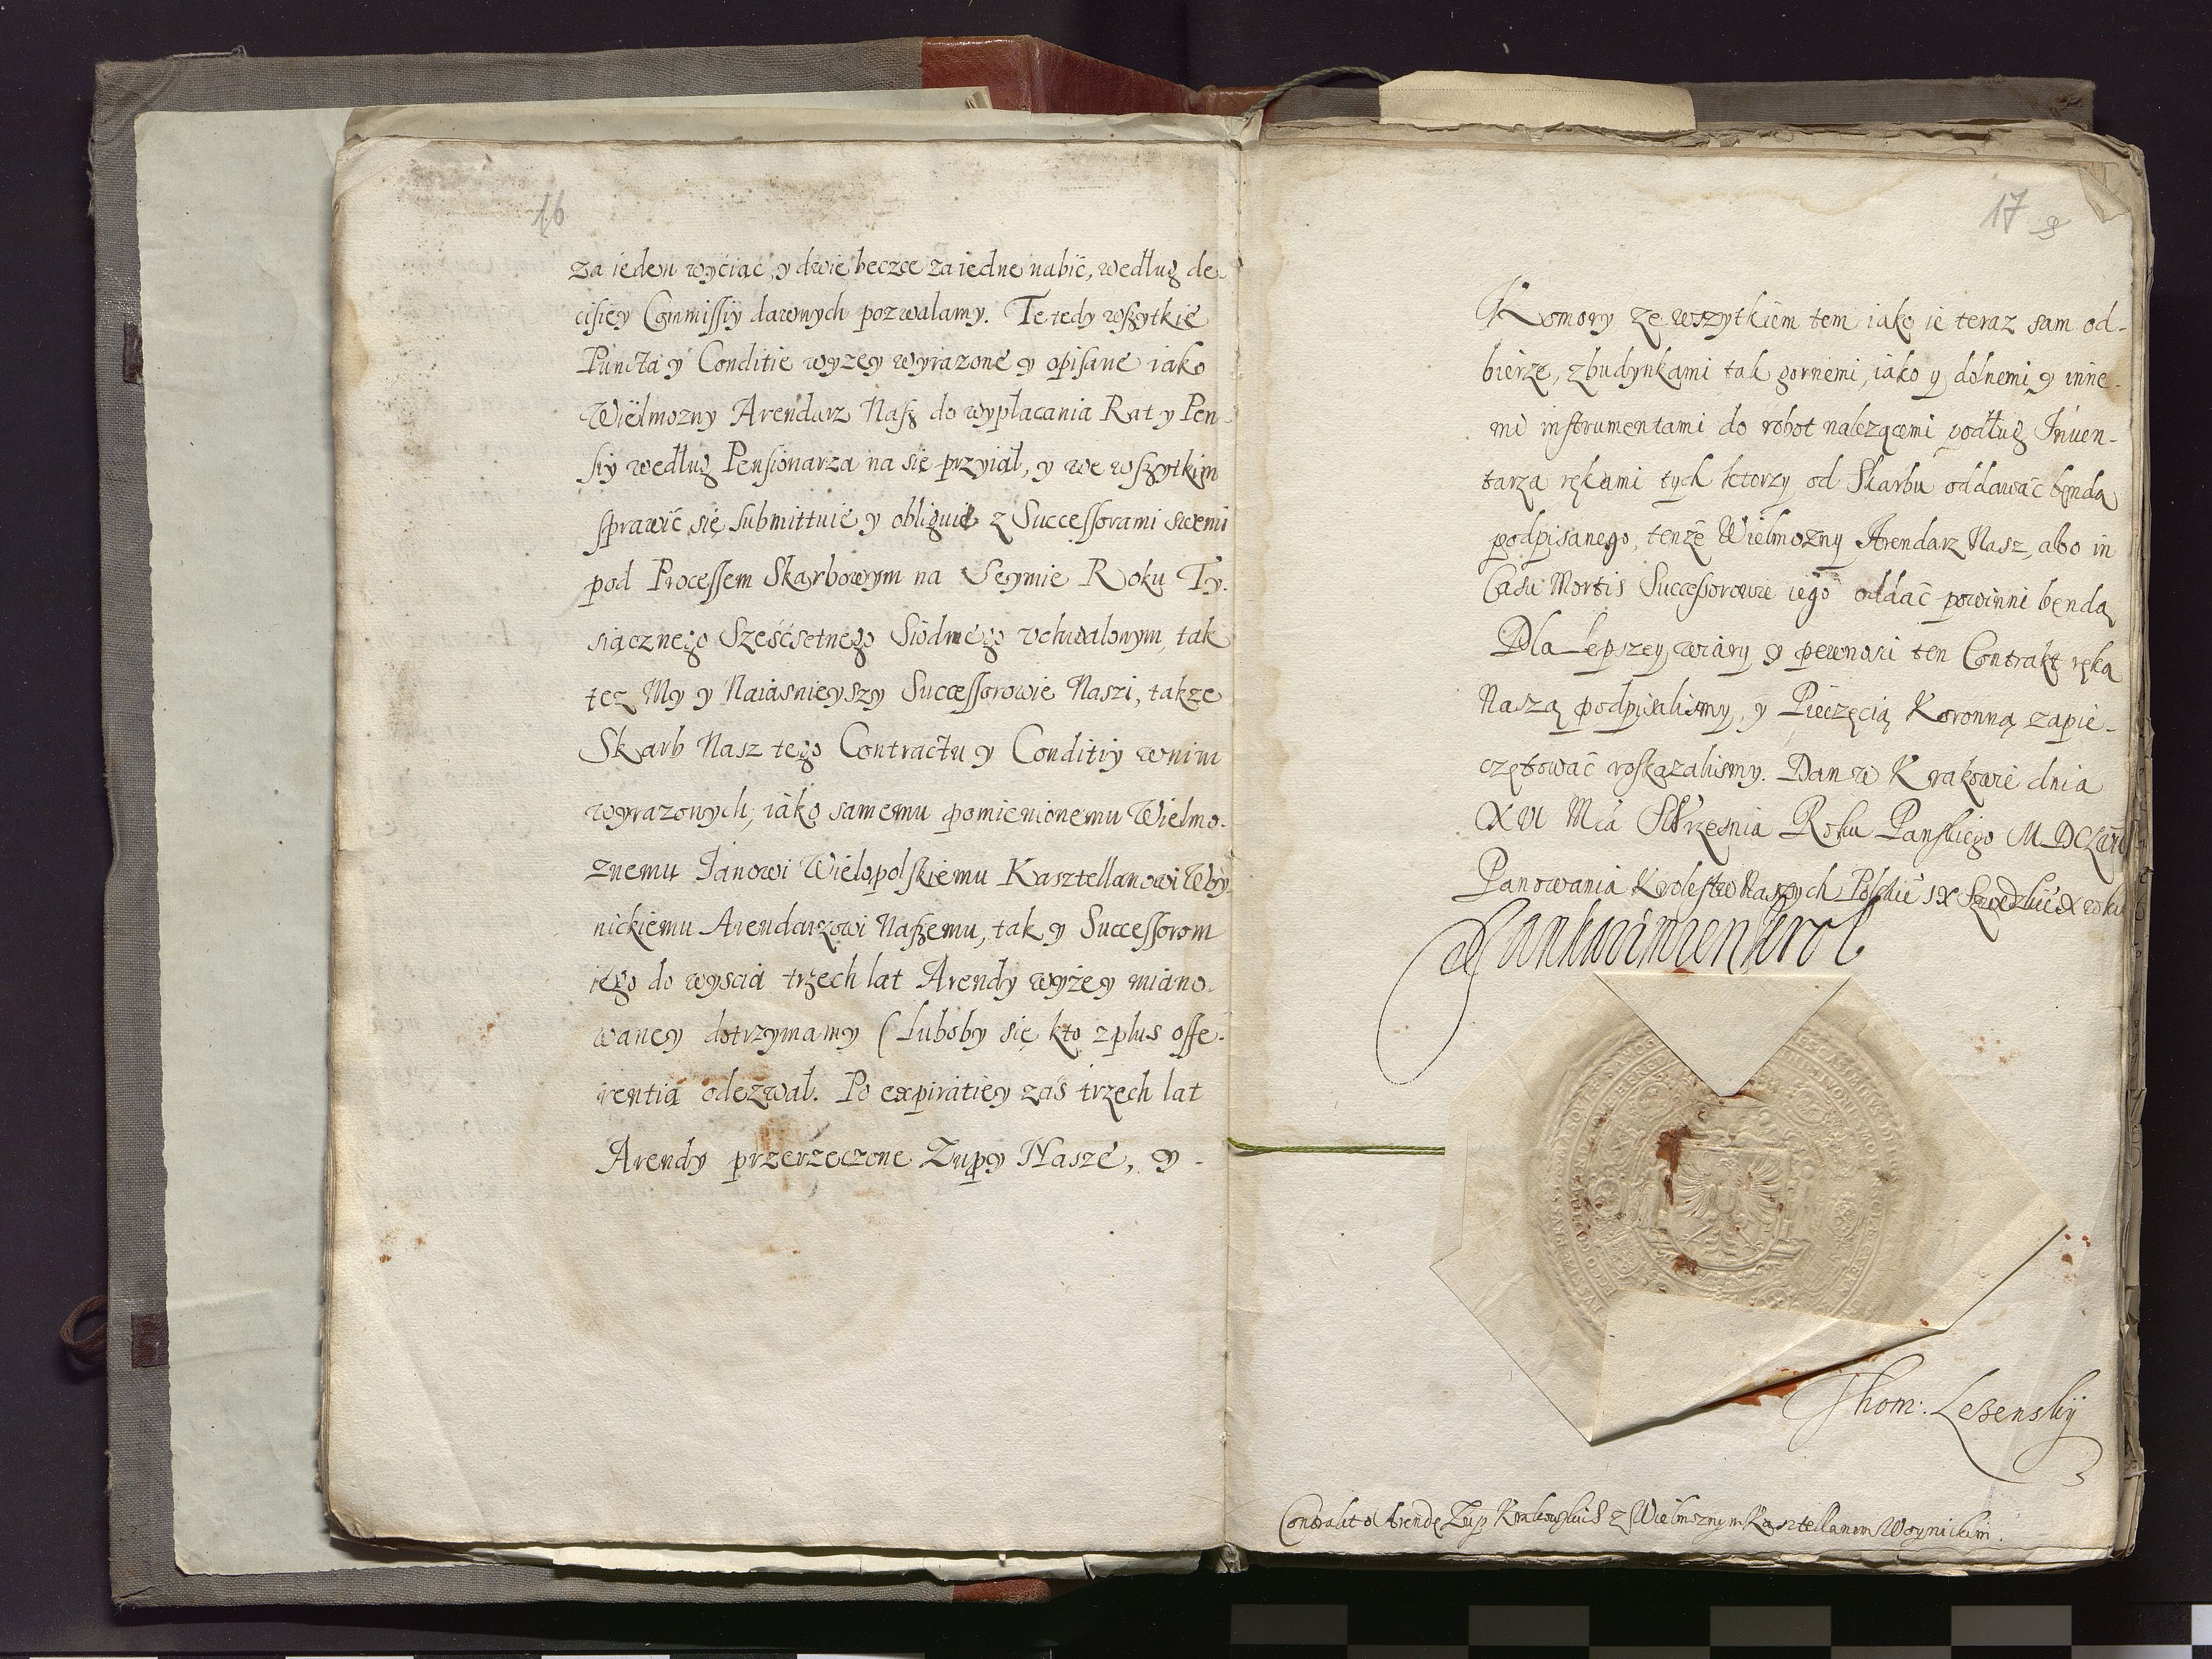 16
za ieden wyciąc, y dwie beczce za iedne nabić, według de-
cisiey Commissiy dawnych pozwalamy. Te tedy wszytkie
Puncta y Conditie wyzey wyrazone y opisane iako
Wielmozny Arendarz Nasz do wypłacania Rat y Pen-
siy według Pensionarza na się przyiął, y we wszytkim
sprawić się submittuie y obliguie z Successorami swemi
pod Processem Skarbowym na Seymie Roku Ty-
siącznego Sześćsetnego Siodmego vchwalonym, tak
tez My y Naiasnieyszy Successorowie Naszi, takze
Skarb Nasz tego Contractu y Conditiy w nim
wyrazonych, iako samemu pomienionemu Wielmo-
znemu Janowi Wielopolskiemu Kasztellanowi Woy-
nickiemu Arendarzowi Naszemu, tak y Successorom
iego do wyscia trzech lat Arendy wyżey miano-
waney dotrzymamy (Luboby się kto z plus offe-
rentią odezwał. Po expiratiey zaś trzech lat
Arendy przerzeczone Zupy Nasze, y
17
Komory ze wszytkiem tem iako ie teraz sam od-
bierze, z budynkami tak gornemi, iako y dolnemi y inne-
mi instrumentami do robot nalezącemi podług Inuen-
tarza rękami tych ktorzy od Skarbu oddawać będą
podpisanego, tenże Wielmozny Arendarz Nasz, abo in
Casu Mortis Successorowie iego oddać powinni będą
Dla Lepszey wiary y pewnosci ten Contrakt ręką
Naszą podpisalismy, y Pieczęcią Koronną zapie-
czętować roskazalismy. Dan w Krakowie dnia
Mca Września Roku Panskiego
Panowania Krolestw Naszych Polskie IX Szwedzkie X roku
Jan Kazimierz Krol
Thom: Lezenskÿ
Contrakt o Arendę Zup Krakowskich z Wielmoznym Kasztellanem Woynickim.